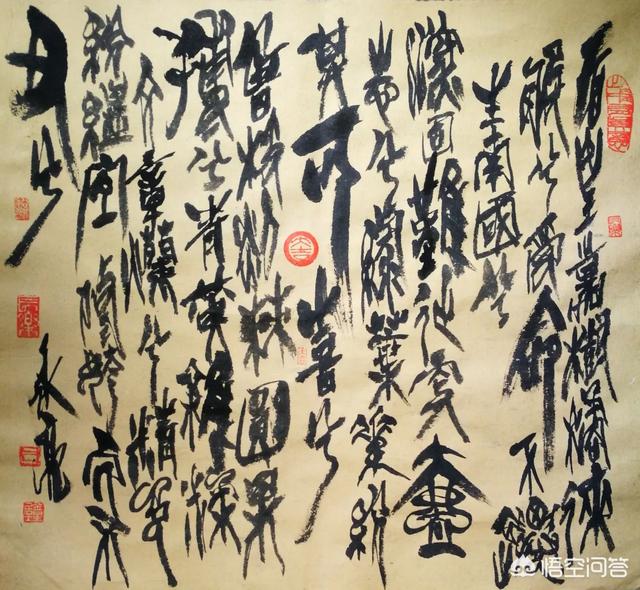 后皇嘉樹橘徠
服兮受命不遷
生南國兮
深固難徙更壹
志兮綠葉素紛
其可喜兮
曾枝剡棘圓果
摶兮青黄雜糅
文章爛兮精
紛縕宜脩姱而不
丑兮
永亮
悟空问答